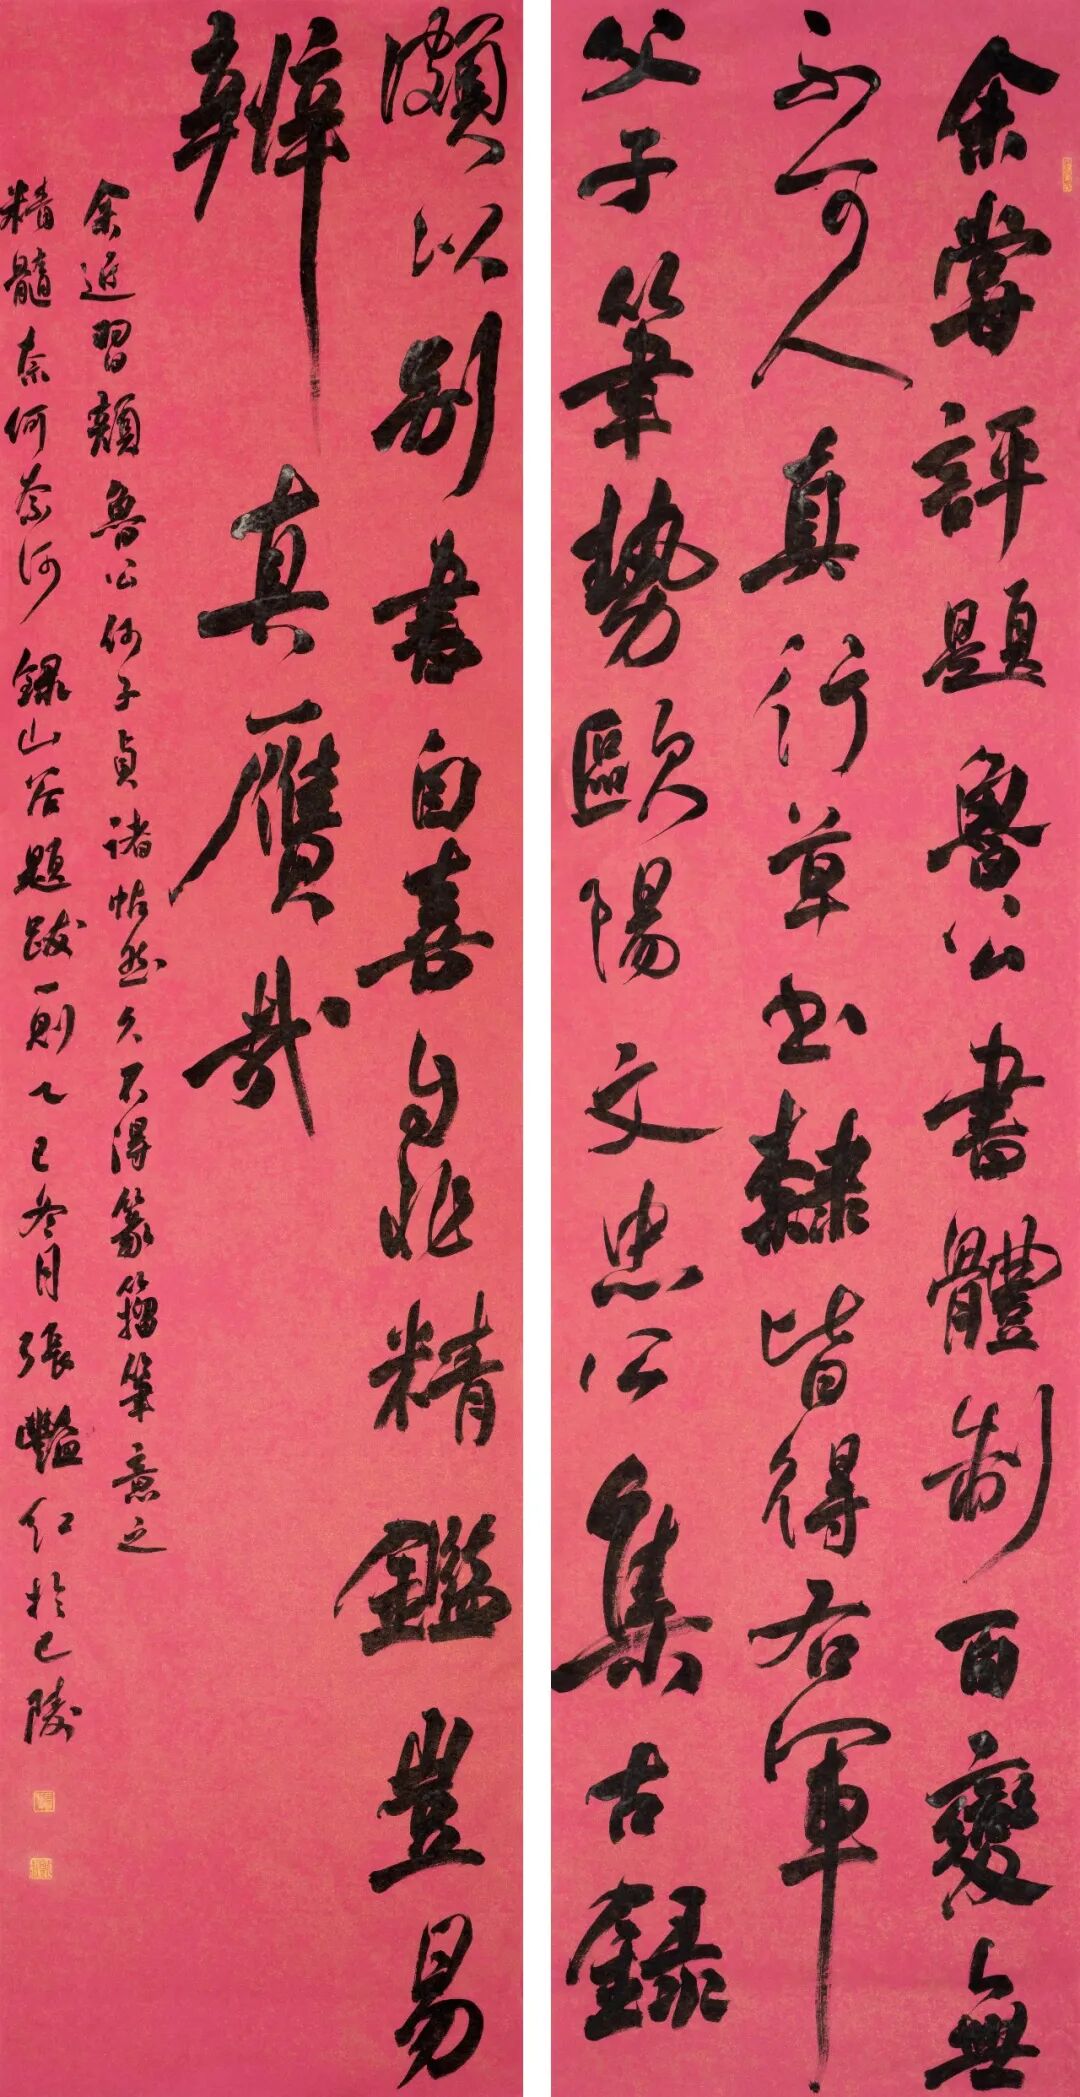 余嘗評題魯公書體制百變無
不可人真行草書隸皆得右軍
父子筆勢歐陽文忠公集古錄
頗以別書自喜自非精鑑豈易
辨真贋哉
余近習顏魯公何子貞諸帖然久不得篆籀筆意之
精髓奈何奈何錄山谷題跋一則乙巳冬月張艷紅於巴陵